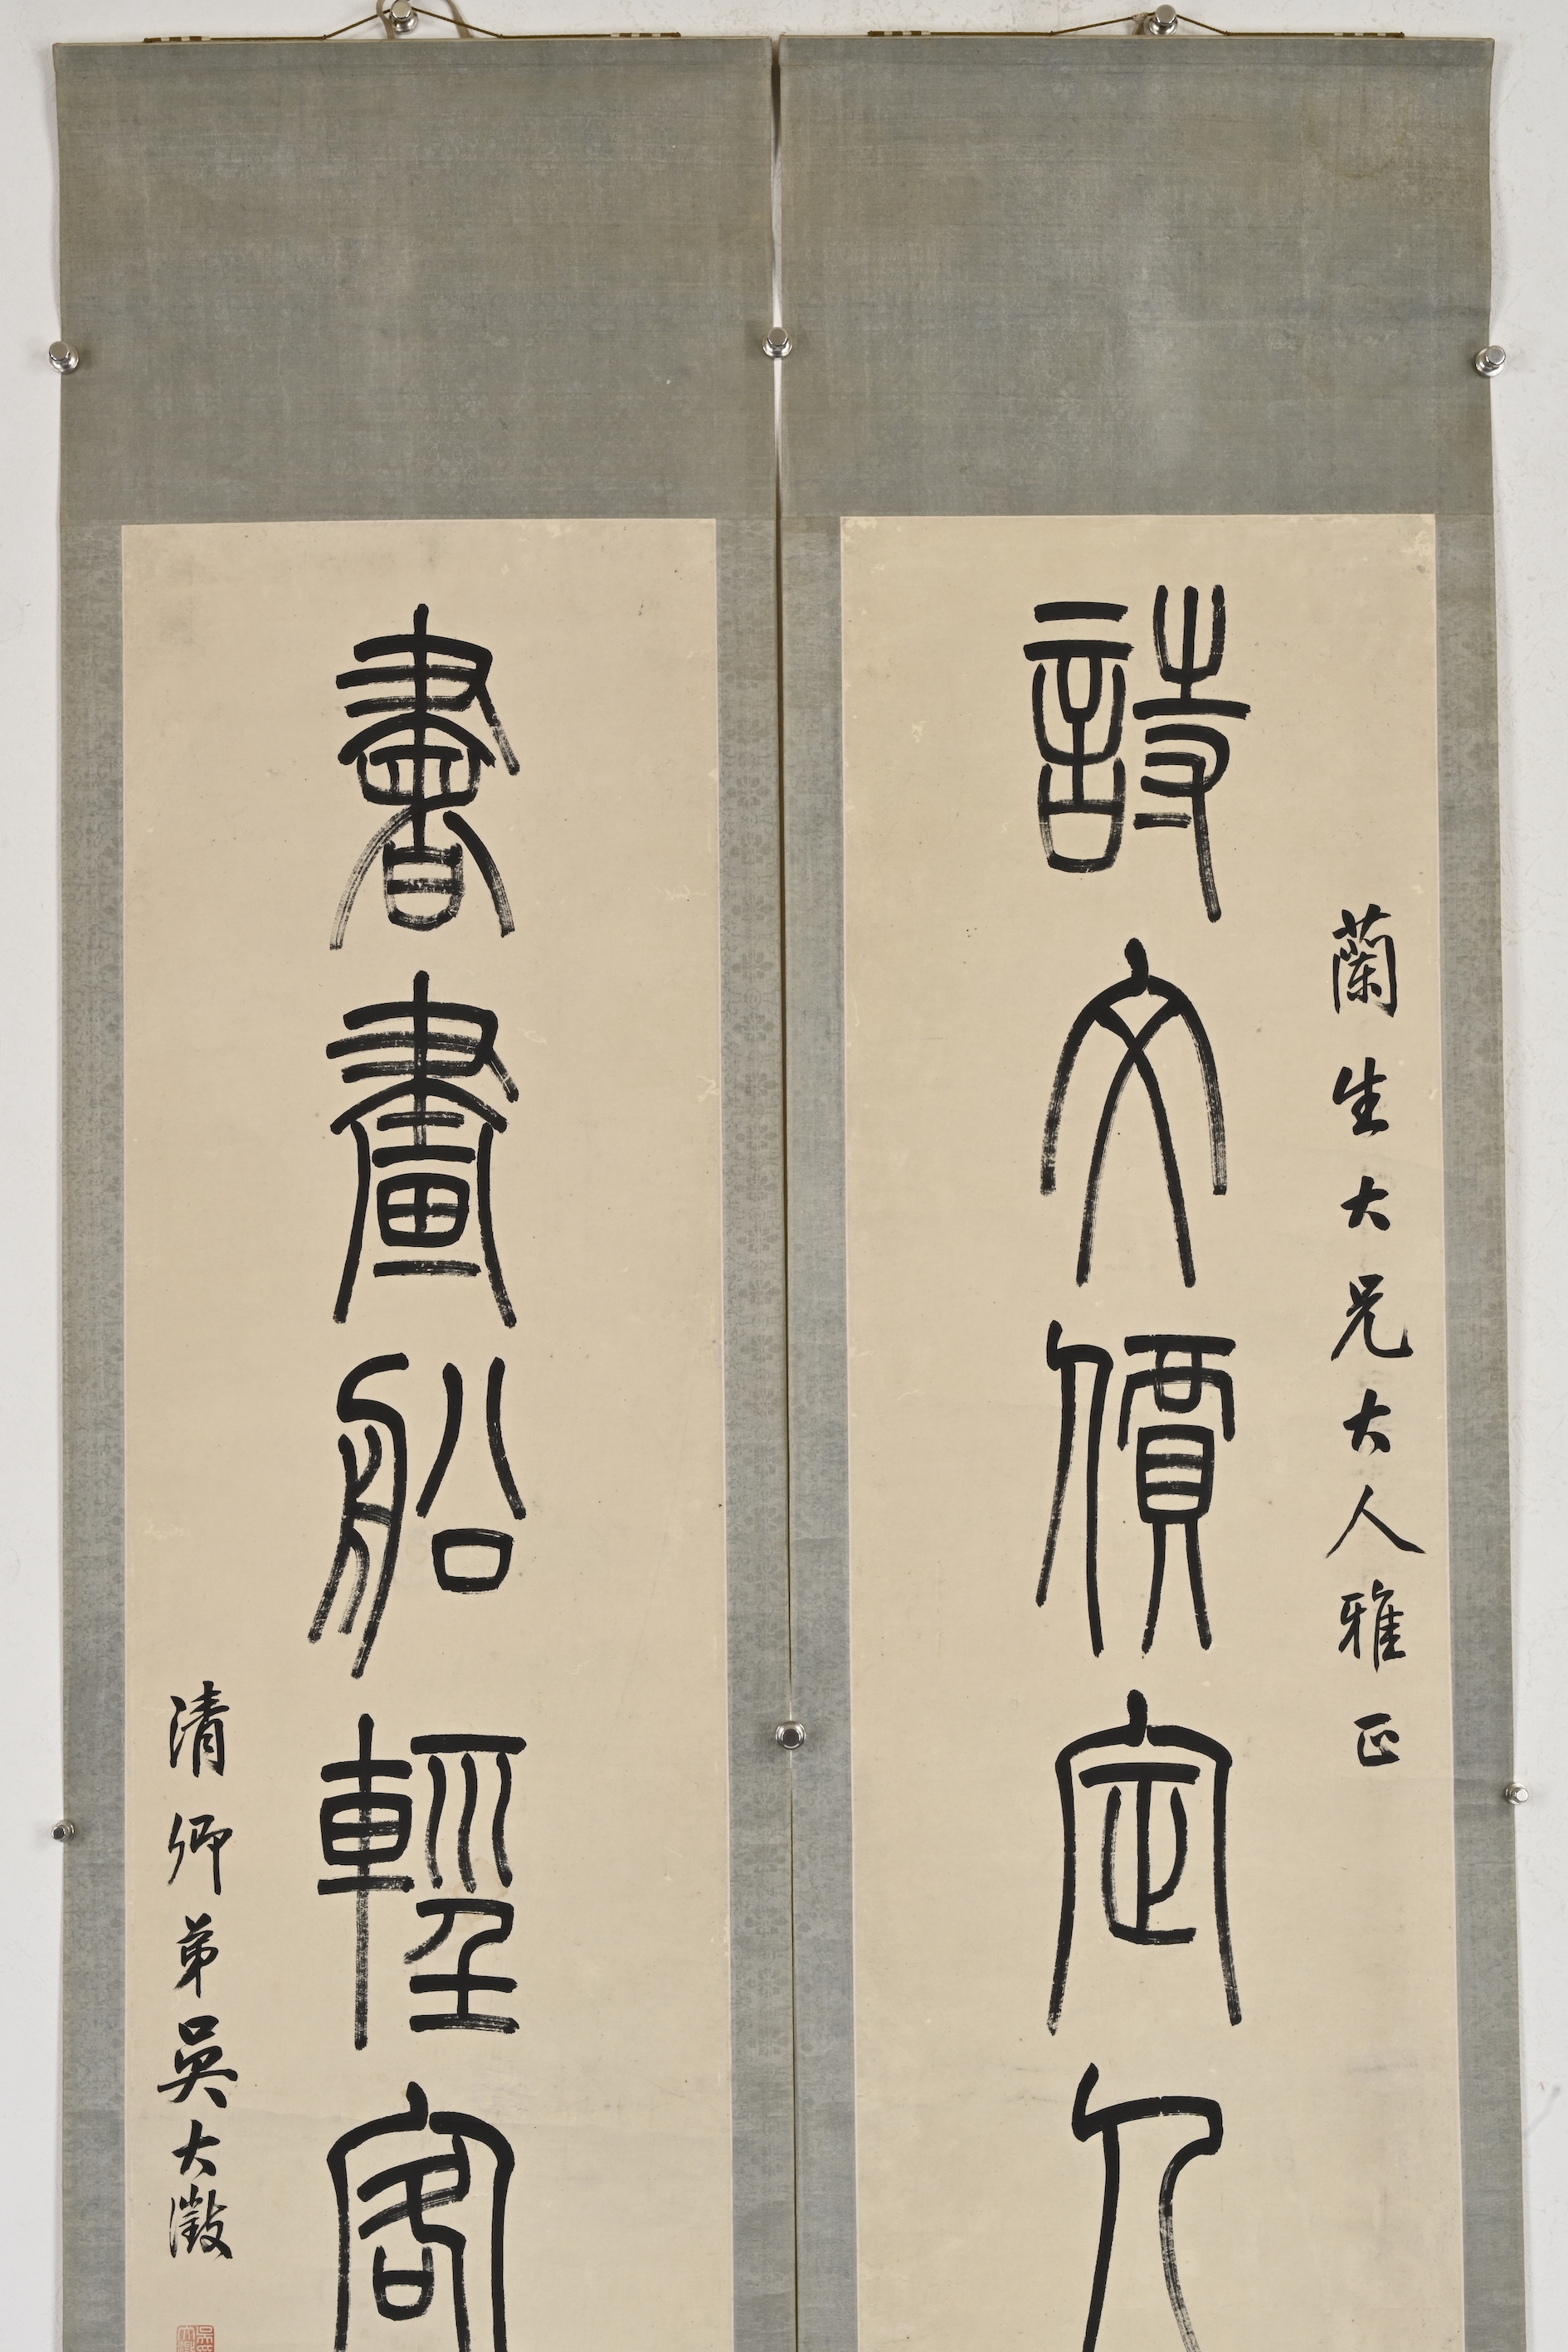 蘭生大兄大人雅正
詩文價定人
書畫船輕客
清卿弟吳大澂